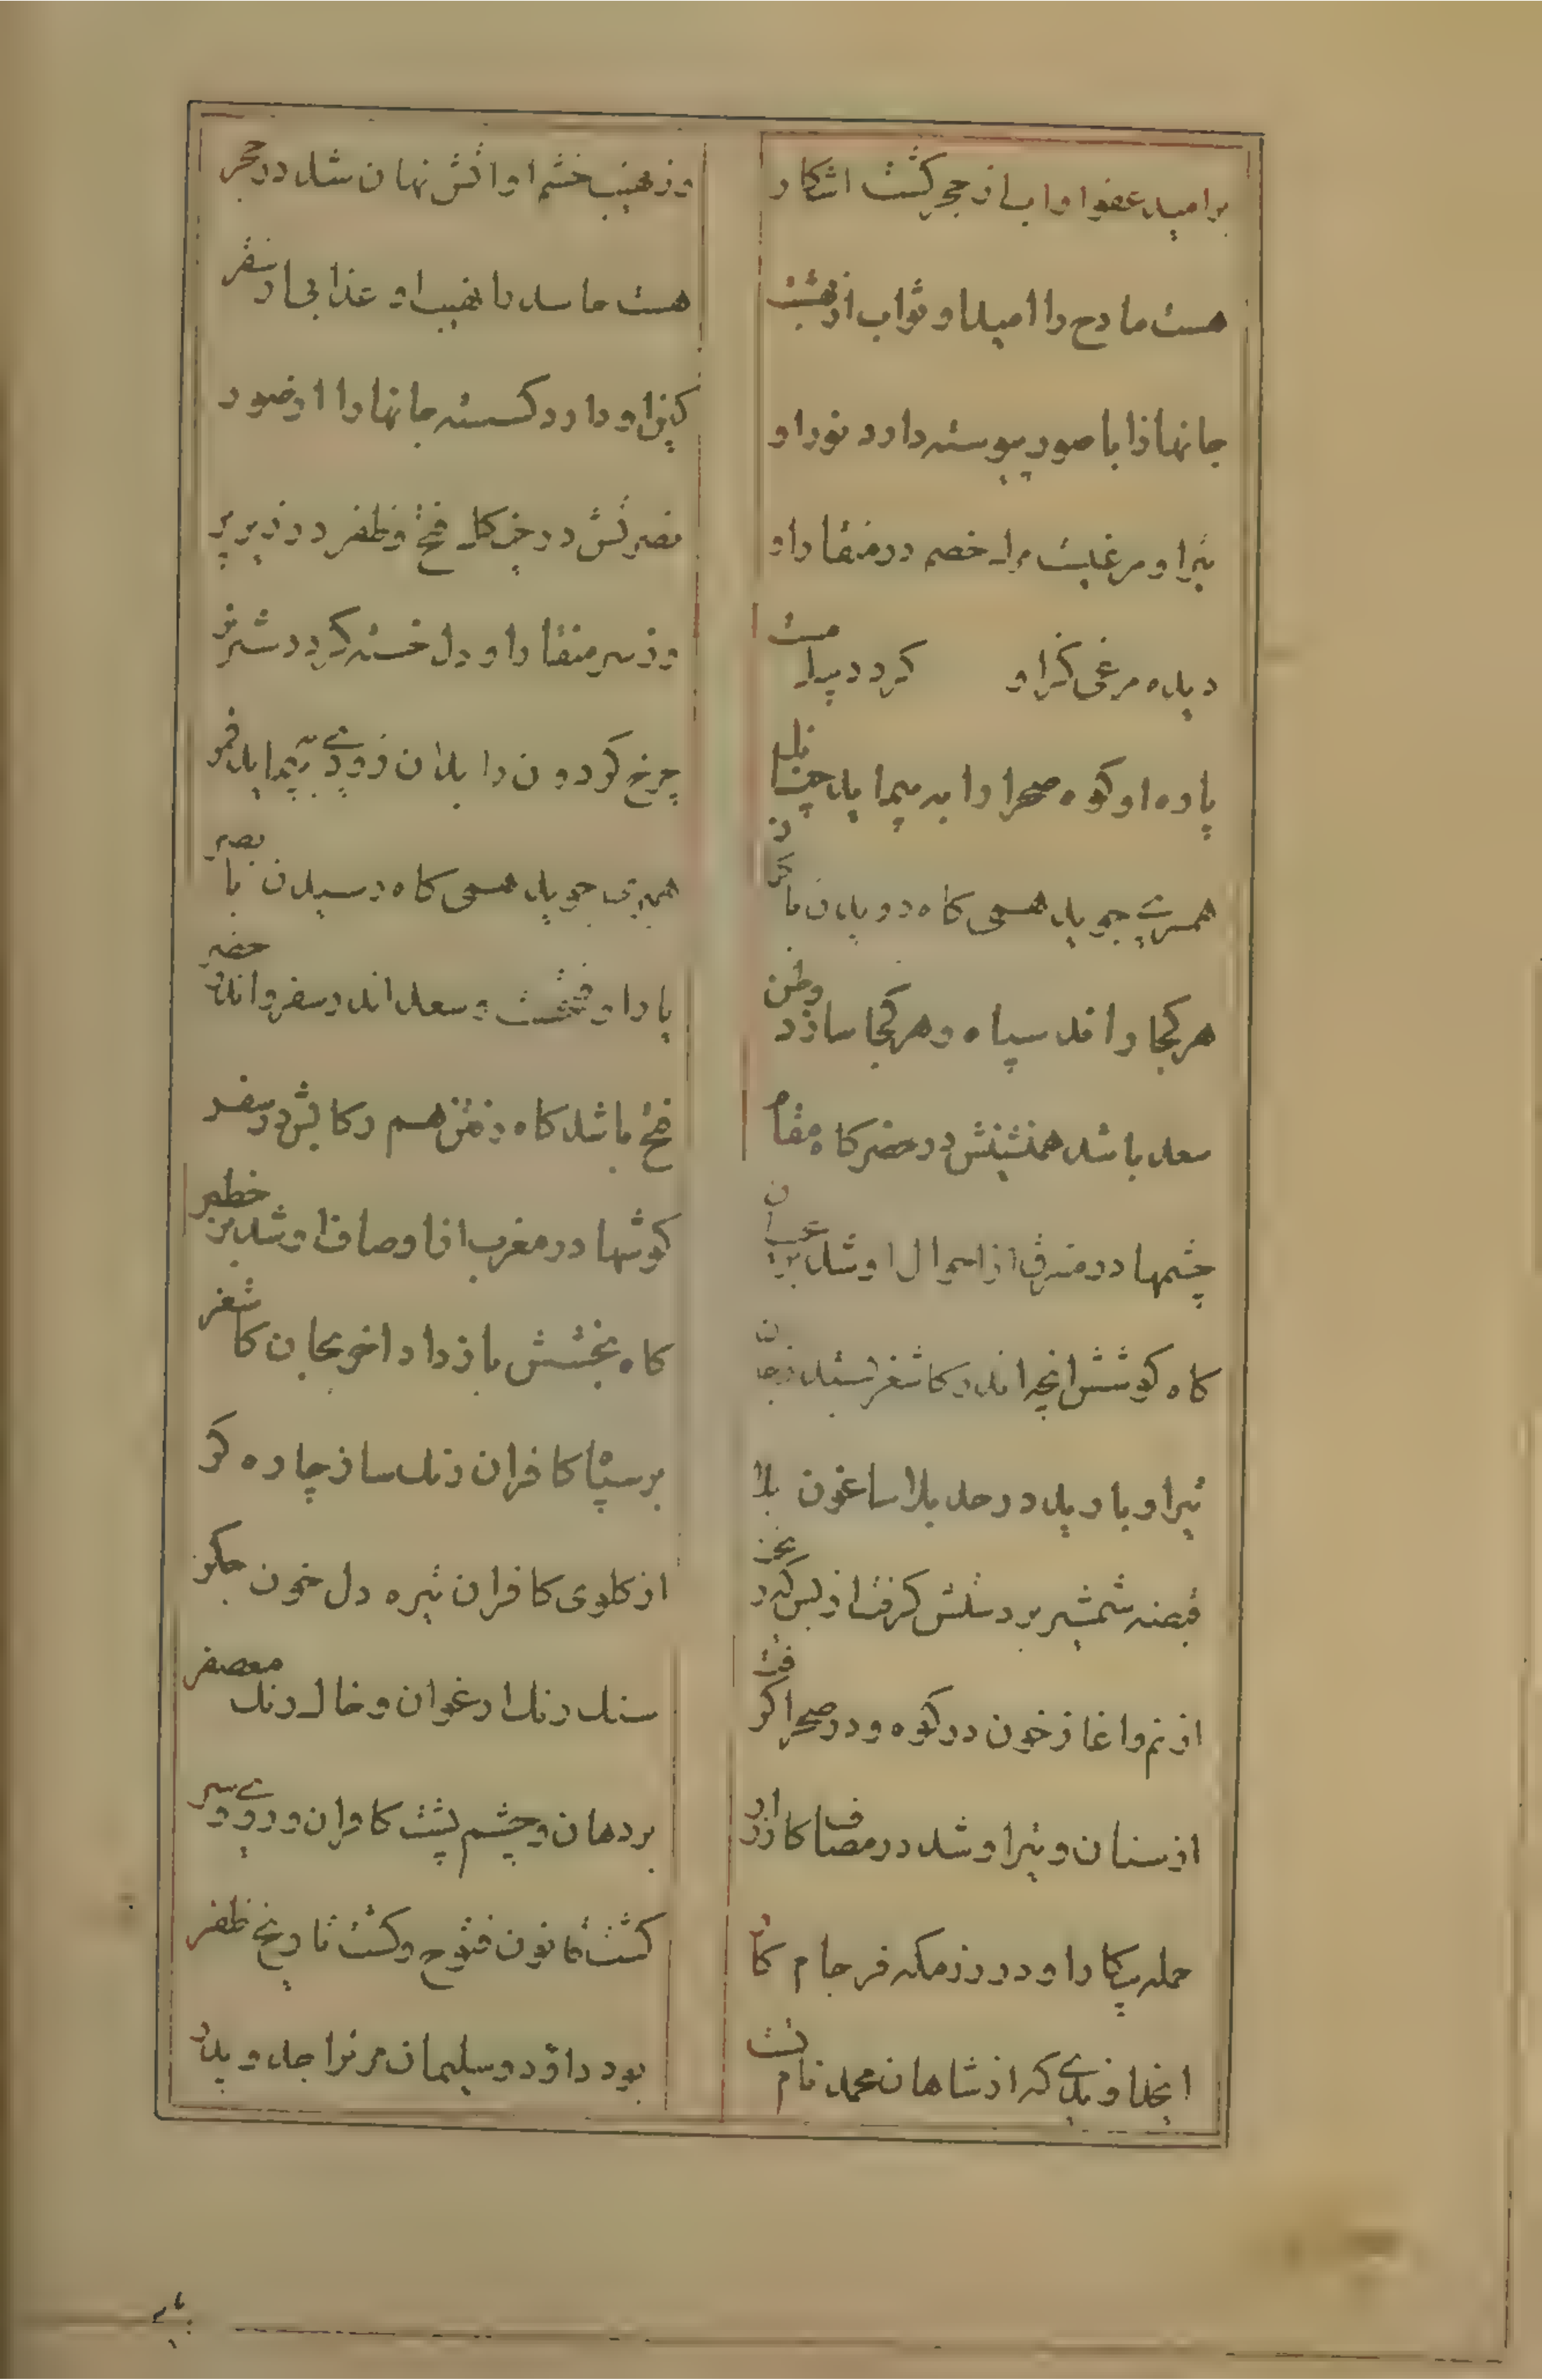 برامید عفو او اب از حجر کشت اشکار
وز نهیب خشم او اتش نهان شد در حجر
هست مادح را امید او ثواب از بهشت
هست حاسد را نهیب او عذابی از سقر
جانها را با صور پیوسته دارد نور او
کین او دارد کسسته جانها را از صور
تیر او مرغیست مرک خصم در منقار او
نصرتش در چنکل فتح و ظفر در زیر پر
دیده مرغی کز او کردد پیل مست
وز سر منقار او دل خسته کردد شیر نر
باره او کوه صحرا را به پیماید چنانک
چرخ کردون را بدان زودی نپیماید قمر
همسری جوید همی کاه دویدن با کمان
همبری جوید همی کاه رسیدن با بصر
هر کجا راند سپاه و هر کجا سازد وطن
یار او فتحست و سعد اندر سفر واندر حضر
سعد باشد همنشینش در حضر کاه مقام
فتح باشد کاه رفتن هم رکابش در سفر
چشمها در مشرق از احوال او شد بر عیان
کوشها در مغرب از اوصاف او شد بر خطر
کاه کوشش انچه اندر کاشغر بستد ز خان
کاه بخشش باز داد اخر بخان کاشغر
تیر او بارید در حد بلاساغون بلا
بر سپاه کافران زنک ساز چاره کر
قبضه شمشیر بر دستش کرفت از بس کرد
از کلوی کافران تیره دل خون جکر
از نم و اغاز خون در کوه و در صحرا کرفت
سنک رنک ارغوان و خاک رنک معصفر
از سنان و تیر او شد در مصاف کارزار
بر دهان و چشم پشت کافران و روی و سر
حمله پیکار او در رزمکه فرجام کار
کشت قانون فتوح و کشت تاریخ ظفر
ایخداوندی که از شاهان محمد نام تست
بود داؤد و سلیمان مر ترا جد و پدر